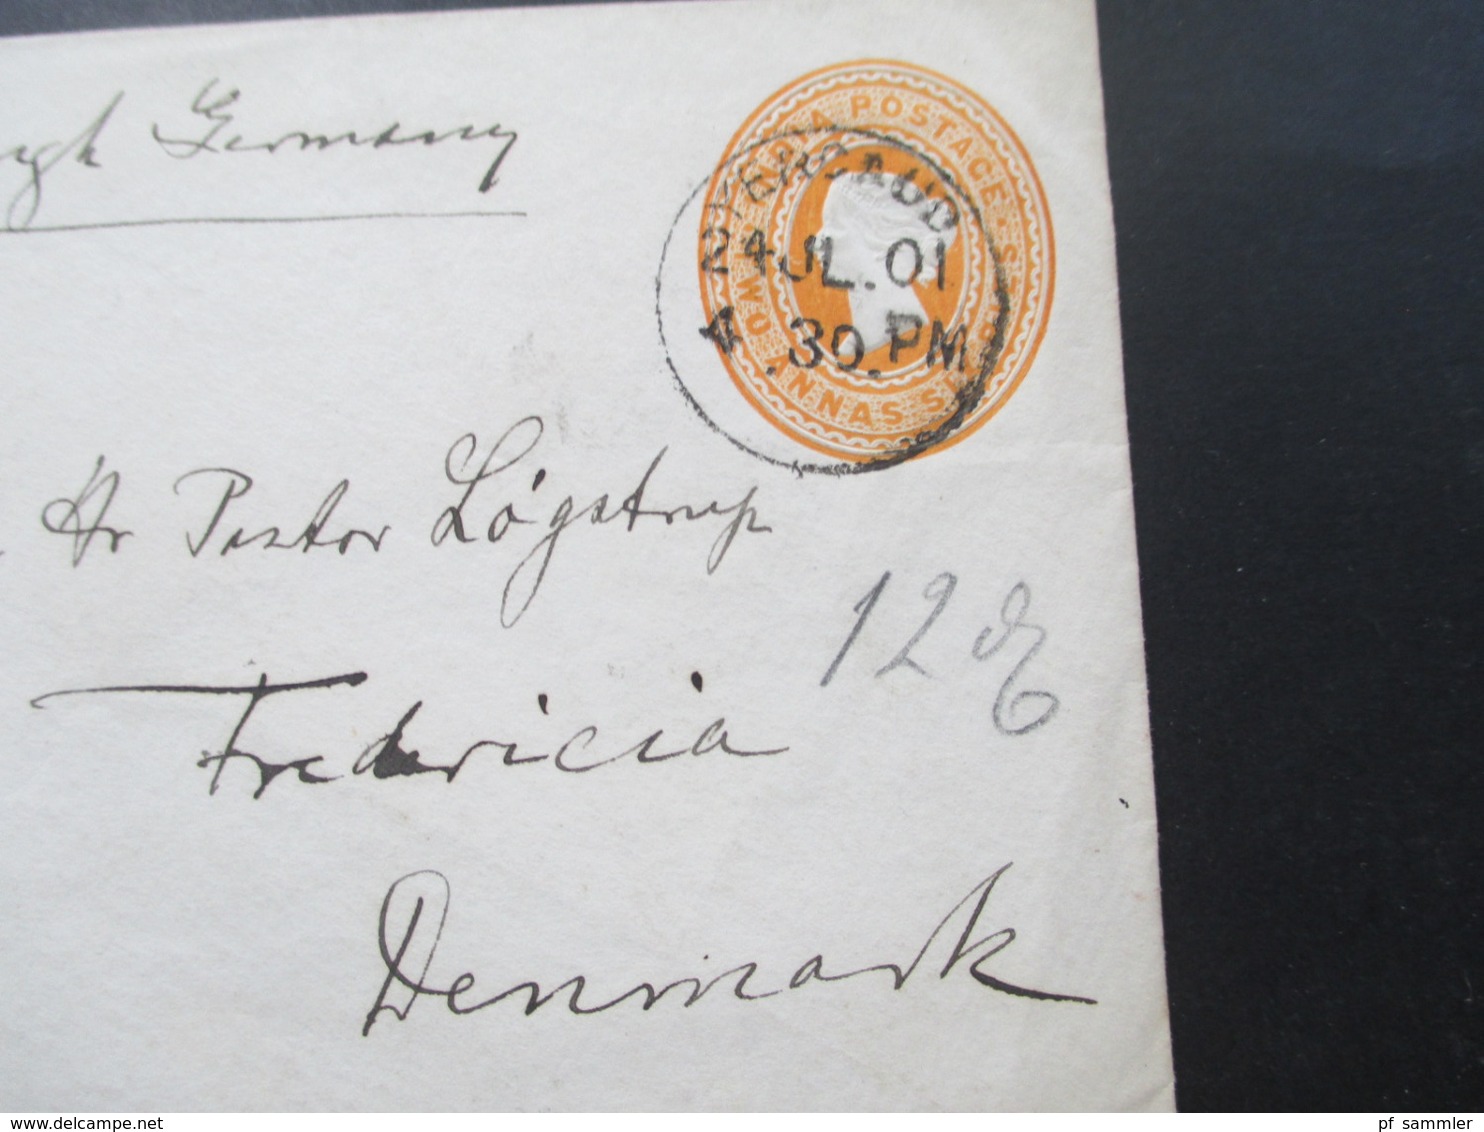 Germany
INDIA POSTAGE
TWO ANNAS SIX PIES
YERCAUD
24 JL. 01
4.30.PM
Hr Pastor Løgstrup
12
Fredericia
Denmark
delcampe.net
pf_sammler